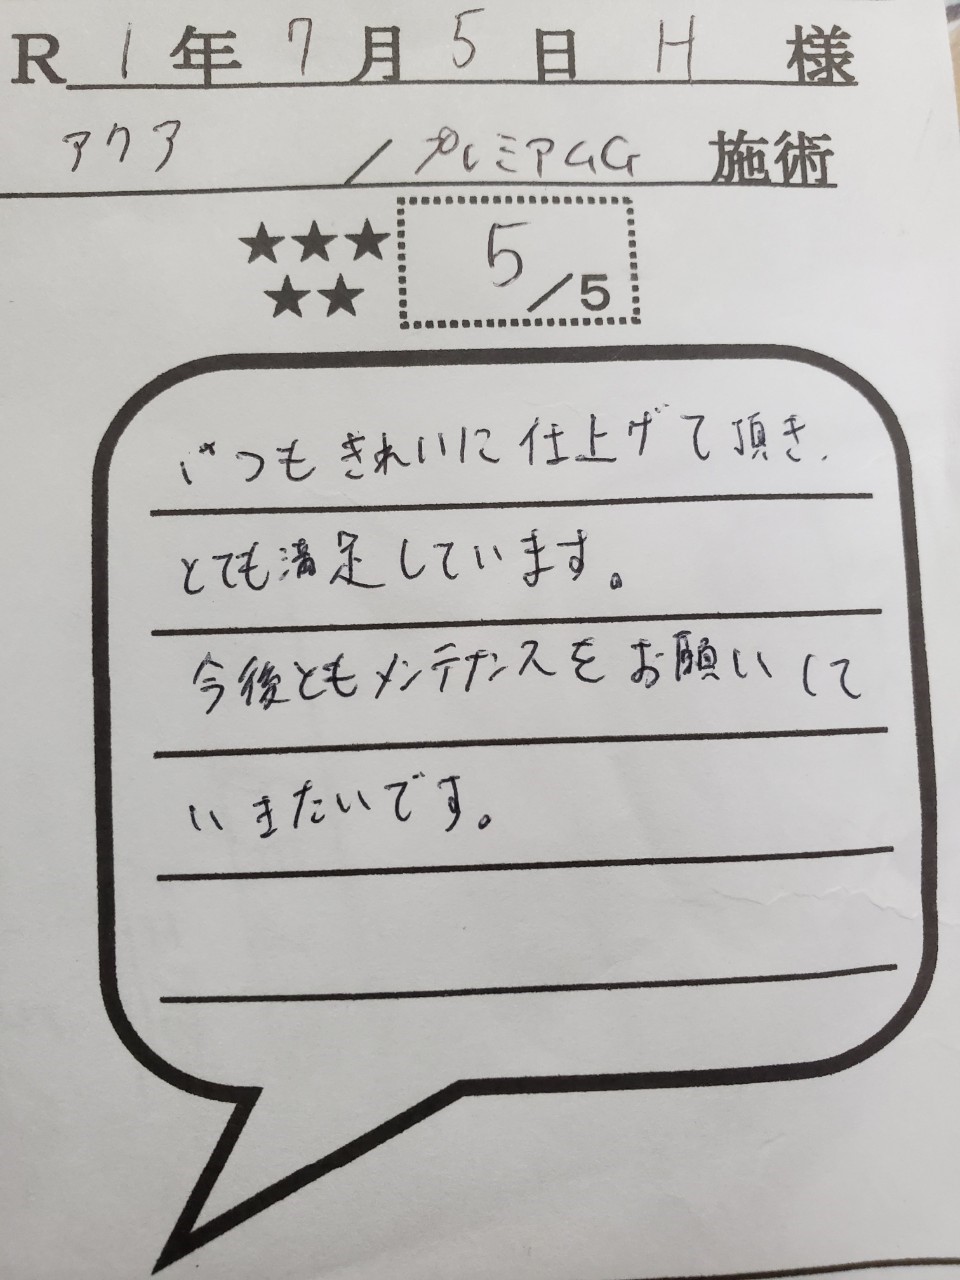 R 1年 7月 5日 H 様
アクア / プレミアムG 施術
★★★
★★
5/5
いつもきれいに仕上げて頂き、
とても満足しています。
今後ともメンテナンスをお願いして
いきたいです。